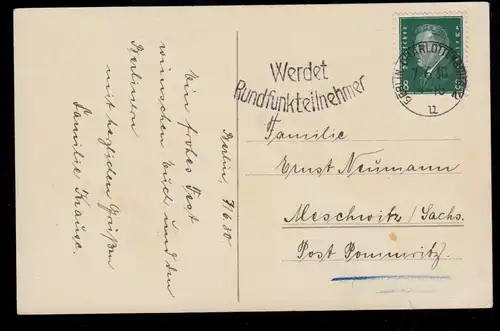 Berlin, 7/6.30
Ein frohes Fest
wünschen Euch und den
Berlinern
mit herzlichen Grüßen
Familie Krause.
Werdet
Rundfunkteilnehmer
BERLIN-CHARLOTTENBURG
7.6.30
u
8
8
Familie
Ernst Neumann
Meschwitz/Sachs.
Post Pommritz.